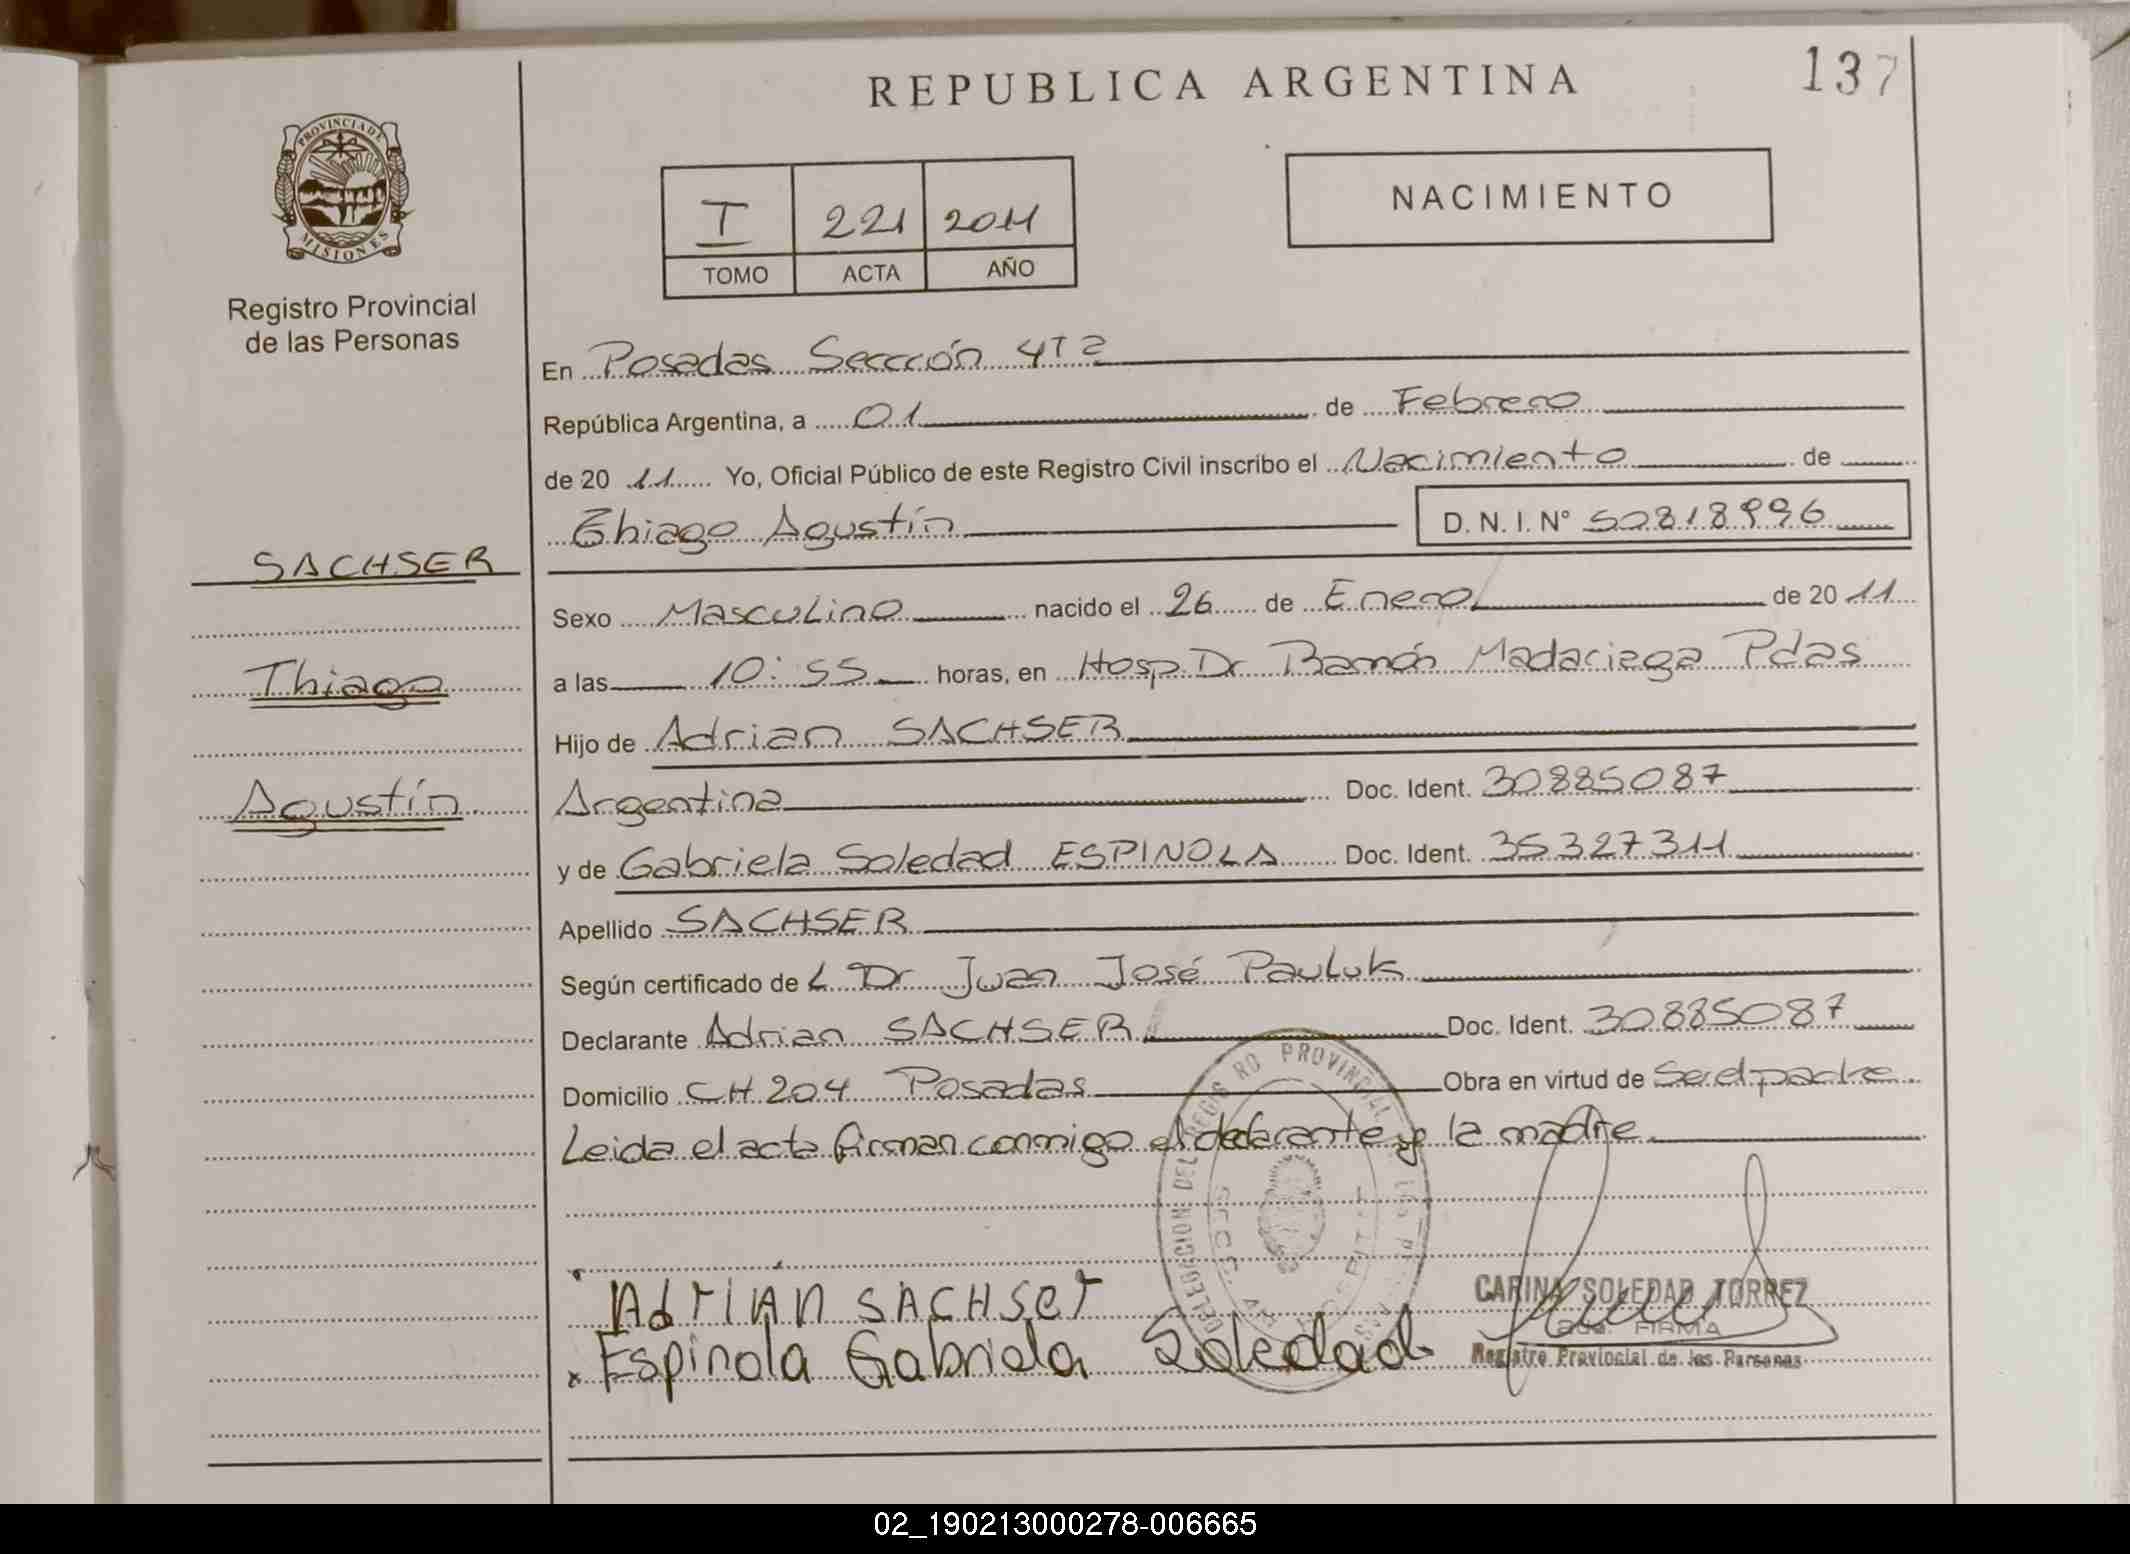 137
REPUBLICA ARGENTINA
PROVINCIA DE
MISIONES
Registro Provincial
de las Personas
NACIMIENTO
I 221 2011
TOMO ACTA AÑO
En Posadas Seccción 4Ta
República Argentina, a 01 de Febrero
de 20 11 Yo, Oficial Público de este Registro Civil inscribo el Nacimiento de
Thiago Agustín D. N. I. N° 50818996
SACHSER
Thiago
Agustín
Sexo Masculino nacido el 26 de Enero de 20 11
a las 10:55 horas, en Hosp. Dr. Ramón Madariega Pdas
Hijo de Adrian SACHSER
Argentina Doc. Ident. 30885087
y de Gabriela Soledad ESPINOLA Doc. Ident. 35327311
Apellido SACHSER
Según certificado de L Dr Juan José Pauluk
Declarante Adrian SACHSER Doc. Ident. 30885087
Domicilio CH 204 Posadas Obra en virtud de Ser el padre
Leida el acta firman conmigo el declarante y la madre
DELEGACION DEL REGISTRO PROVINCIAL
AdriAn SACHSer
Espinola Gabriela Soledad
CARINA SOLEDAD TORREZ
FIRMA
Registro Provincial de las Personas
02_190213000278-006665